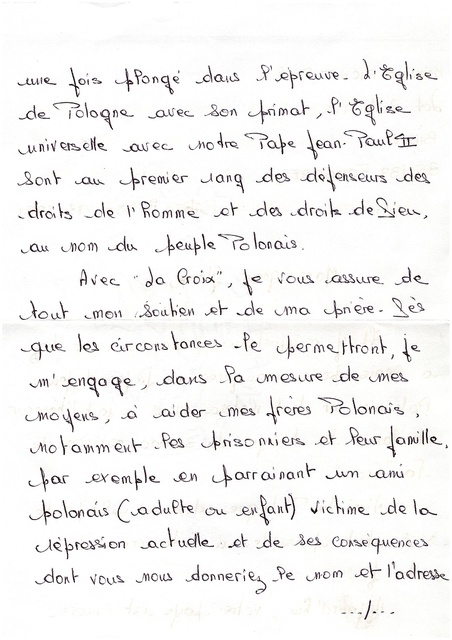 une fois plongé dans l'épreuve. L'Eglise
de Pologne avec son primat, l'Eglise
universelle avec notre Pape Jean-Paul II
sont au premier rang des défenseurs des
droits de l'homme et des droits de Dieu,
au nom du peuple Polonais.
Avec "La Croix", je vous assure de
tout mon soutien et de ma prière. Dès
que les circonstances le permettront, je
m'engage, dans la mesure de mes
moyens, à aider mes frères Polonais,
notamment les prisonniers et leur famille,
par exemple en parrainant un ami
polonais (adulte ou enfant) victime de la
répression actuelle et de ses conséquences
dont vous nous donneriez le nom et l'adresse
.../...